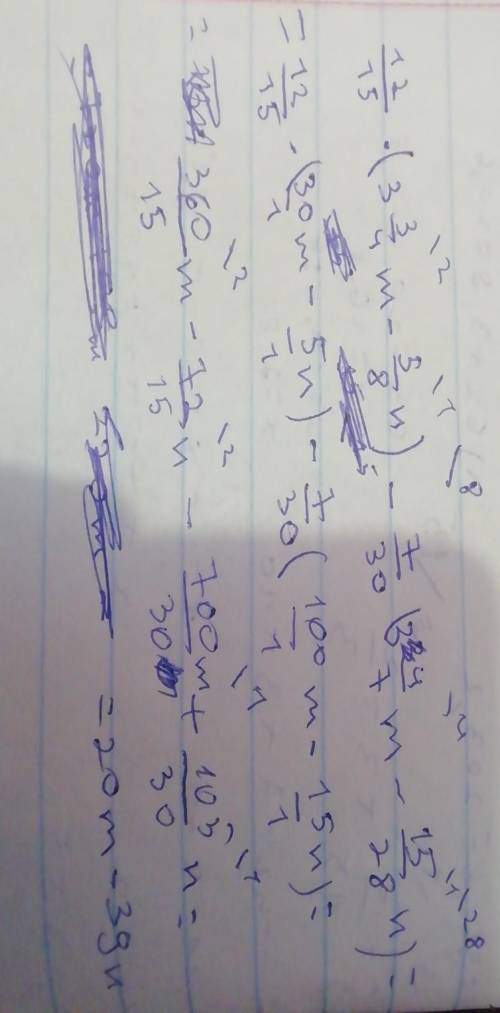 12/15 · (3 3/4 m^\2 - 5/8 n^\1) \8 - 7/30 (3 4/7 m^\4 - 15/28 n^\1) \28 =
= 12/15 · (30/1 m - 5/1 n) - 7/30 (100/1 m - 15/1 n) =
= 360/15 m^\2 - 72/15 n^\2 - 700/30 m^\1 + 105/30 n^\1 =
= 20m - 39n